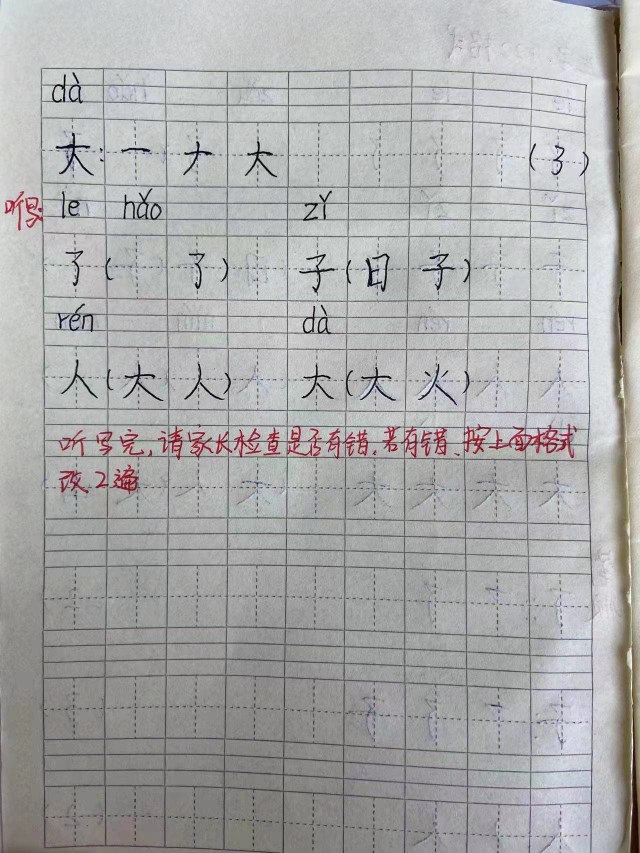 dà
大: 一 ナ 大 (了)
听写: le hǎo zǐ
了( 了) 子(日 子)
rén dà
人(大 人) 大(大 火)
听写完,请家长检查是否有错,若有错、按上面格式
改2遍